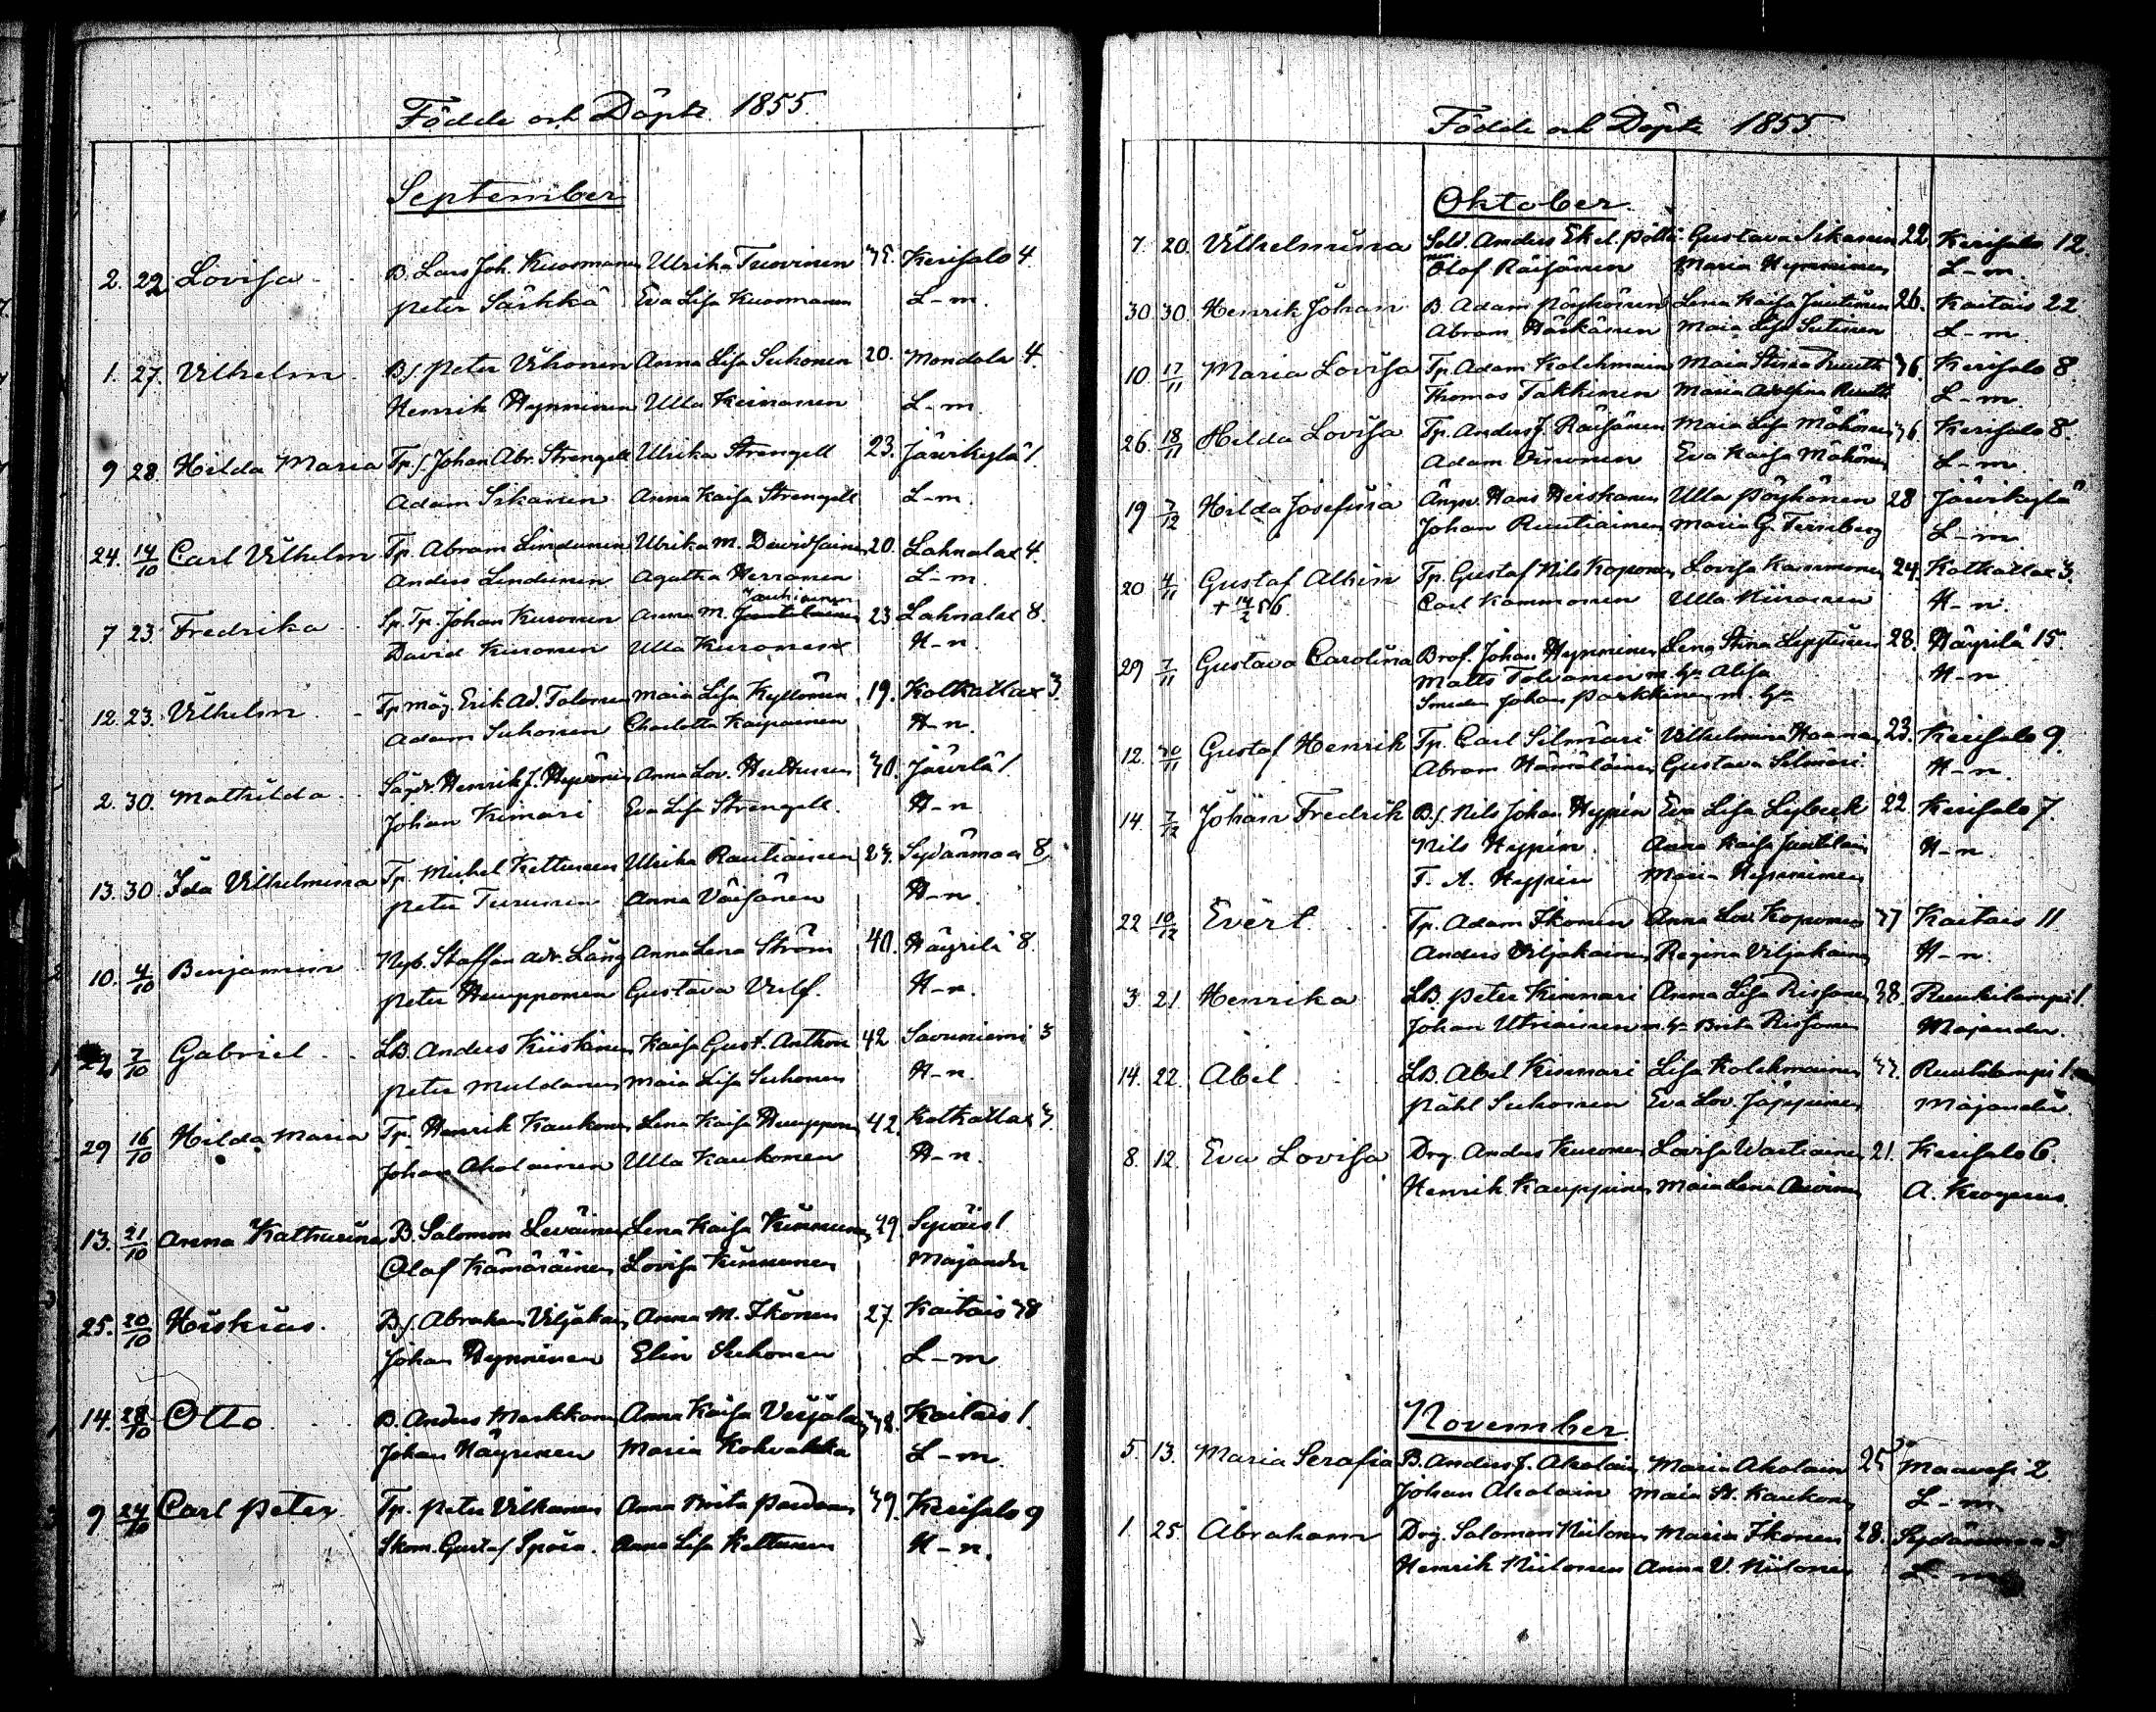 Födde och Döpte 1855.
September
2. 22 Lovisa B. Lars Joh. Kuosmanen Ulrika Tuovinen 35. Kerisalo 4
Peter Särkkä Eva Lisa Kuosmanen L-m.
1. 27. Vilhelm Bs. Peter Vihonen Anna Lisa Suhonen 20. Mondola 4.
Henrik Hynninen Ulla Keinanen L-m.
9 28. Hilda Maria Tp.s. Johan Abr. Strengell Ulrika Strengell 23. Järvikylä 1.
Adam Sikanen Anna Kaisa Strengell L-m.
24. 14/10 Carl Vilhelm Tp. Abram Lindunen Ulrika M. Davidsainen 20. Lahnalax 4.
Anders Lindunen Agatha Herranen L-m.
7 23. Fredrika Sp. Tp. Johan Kuronen Anna M. Jauhiainen 23 Lahnalax 8.
David Kuronen Ulla Kuronen H-n.
12. 23. Vilhelm Tp måg. Erik Ad. Tolonen Maia Lisa Kyllönen 19. Kotkatlax 3.
Adam Suhonen Charlotta Kaipainen H-n.
2. 30. Mathilda Henrik J. Hyvönen Anna Lov. Hulttunen 30. Järvilä 1.
Johan Kimari Eva Lisa Strengell H-n
13. 30. Ida Vilhelmina Tp. Michel Kettunen Ulrika Rautiainen 27. Sydänmaa 8.
Peter Turunen Anna Väisänen H-n.
10. 4/10 Benjamin Nyb. Staffan Adr. Lång Anna Lena Ström 40. Häyrilä 8.
Peter Heupponen Gustava Vulf. H-n.
7/10 Gabriel LB. Anders Kiiskinen Kaisa Gust. Anthon 42 Savuniemi 3
Peter Muldanen Maia Lisa Suhonen H-n.
29 16/10 Hilda Maria Tp. Henrik Kaukonen Lena Kaisa Heupponen 42. Kotkatlax 3.
Johan Aholainen Ulla Kaukonen H-n.
13. 21/10 Anna Kathurina B. Salomon Leväinen Lena Kaisa Kinnunen 29. Syväis 1
Olof Kämäräinen Lovisa Kinnunen Majander
25. 20/10 Hiskias. Bs. Abraham Viljakain Anna M. Ikonen 27. Kaitais 38
Johan Hynninen Elin Suhonen L-m
14. 28/10 Otto B. Anders Markkanen Anna Kaisa Veijalain 38. Kaitais 1
Johan Häyrinen Maria Kohvakka L-m.
9. 24/10 Carl Peter Tp. Peter Vilkanen Anna Brita Pardanen 39. Kerisalo 9
Skom. Gustaf Spora. Anna Lisa Kettunen H-n.
Födde och Döpte 1855
Oktober.
7. 20. Vilhelmina Sold. Anders Ekel. Pöllä- Gustava Sikanen 22 Kerisalo 12.
nen Olof Räisänen Maria Hynninen L-m.
30. 30. Henrik Johan B. Adam Pöyhönen Lena Kaisa Juutinen 26. Kaitais 22
Abram Härkänen Maia Lisa Sutinen L-m.
10. 17/11 Maria Lovisa Tp. Adam Kolehmain Maia Stina Ruuth 36. Kerisalo 8.
Thomas Takkinen Maria Adolfina Ruuth L-m.
26. 18/11 Hilda Lovisa Tp. Anders J. Räisänen Maia Lisa Mähönen 36. Kerisalo 8.
Adam Eva Kaisa Mähönen L-m.
19 7/12 Hilda Josefina Hans Heiskanen Ulla Pöyhönen 28 Järvikylä
Johan Rautiainen Maria G. Fernberg L-m.
20 4/11 Gustaf Albin Tp. Gustaf Nils Koponen Lovisa Kammonen 24. Kotkatlax 3.
+ 14/2 56. Carl Kammonen Ulla Kinanen H-n.
29 7/11 Gustava Carolina Brof. Johan Hynninen Lena Stina Leppänen 28. Häyrilä 15.
Matts Tolvanen m. h. Alisa H-n
Smeden Johan Parkkinen m. h.
12. 30/11 Gustaf Henrik Tp. Carl Silmäri Vilhelmina Haanen 23. Kerisalo 9.
Abram Hämäläinen Gustava Silmäri. H-n.
14. 7/12 Johan Fredrik Bs. Nils Johan Hyppén Eva Lisa Lybeck 22. Kerisalo 7.
Nils Hyppén. Anna Kaisa Juutilain H-n.
F. A. Hyppén Maria Hynninen
22 10/12 Evert. Tp. Adam Ikonen Anna Lov. Koponen 37 Kaitais 11.
Anders Viljakainen Regina Viljakainen H-n.
3. 21. Henrika LB. Peter Kinnari Anna Lisa Rissanen 38. Ruukilampi 1.
Johan Utriainen m. h. Brita Rissanen Majander.
14. 22. Abel LB. Abel Kinnari Lisa Kolehmainen 37. Ruukilampi 1.
Påhl Suhonen Eva Lov. Jäppinen Majander.
8. 12. Eva Lovisa Drg. Anders Kuronen Lovisa Wartiainen 21. Kerisalo 6.
Henrik Kauppinen Maia Lena Auvinen A. Krogerus.
November.
5. 13. Maria Serafia B. Anders J. Aholain Maria Aholain 25 Maavesi 2
Johan Aholain Maia St. Kaukonen L-m.
1. 25. Abraham Drg. Salomon Niilonen Maria Ikonen 28. Sydänmaa 3
Henrik Niilonen Anna V. Niilonen L-m